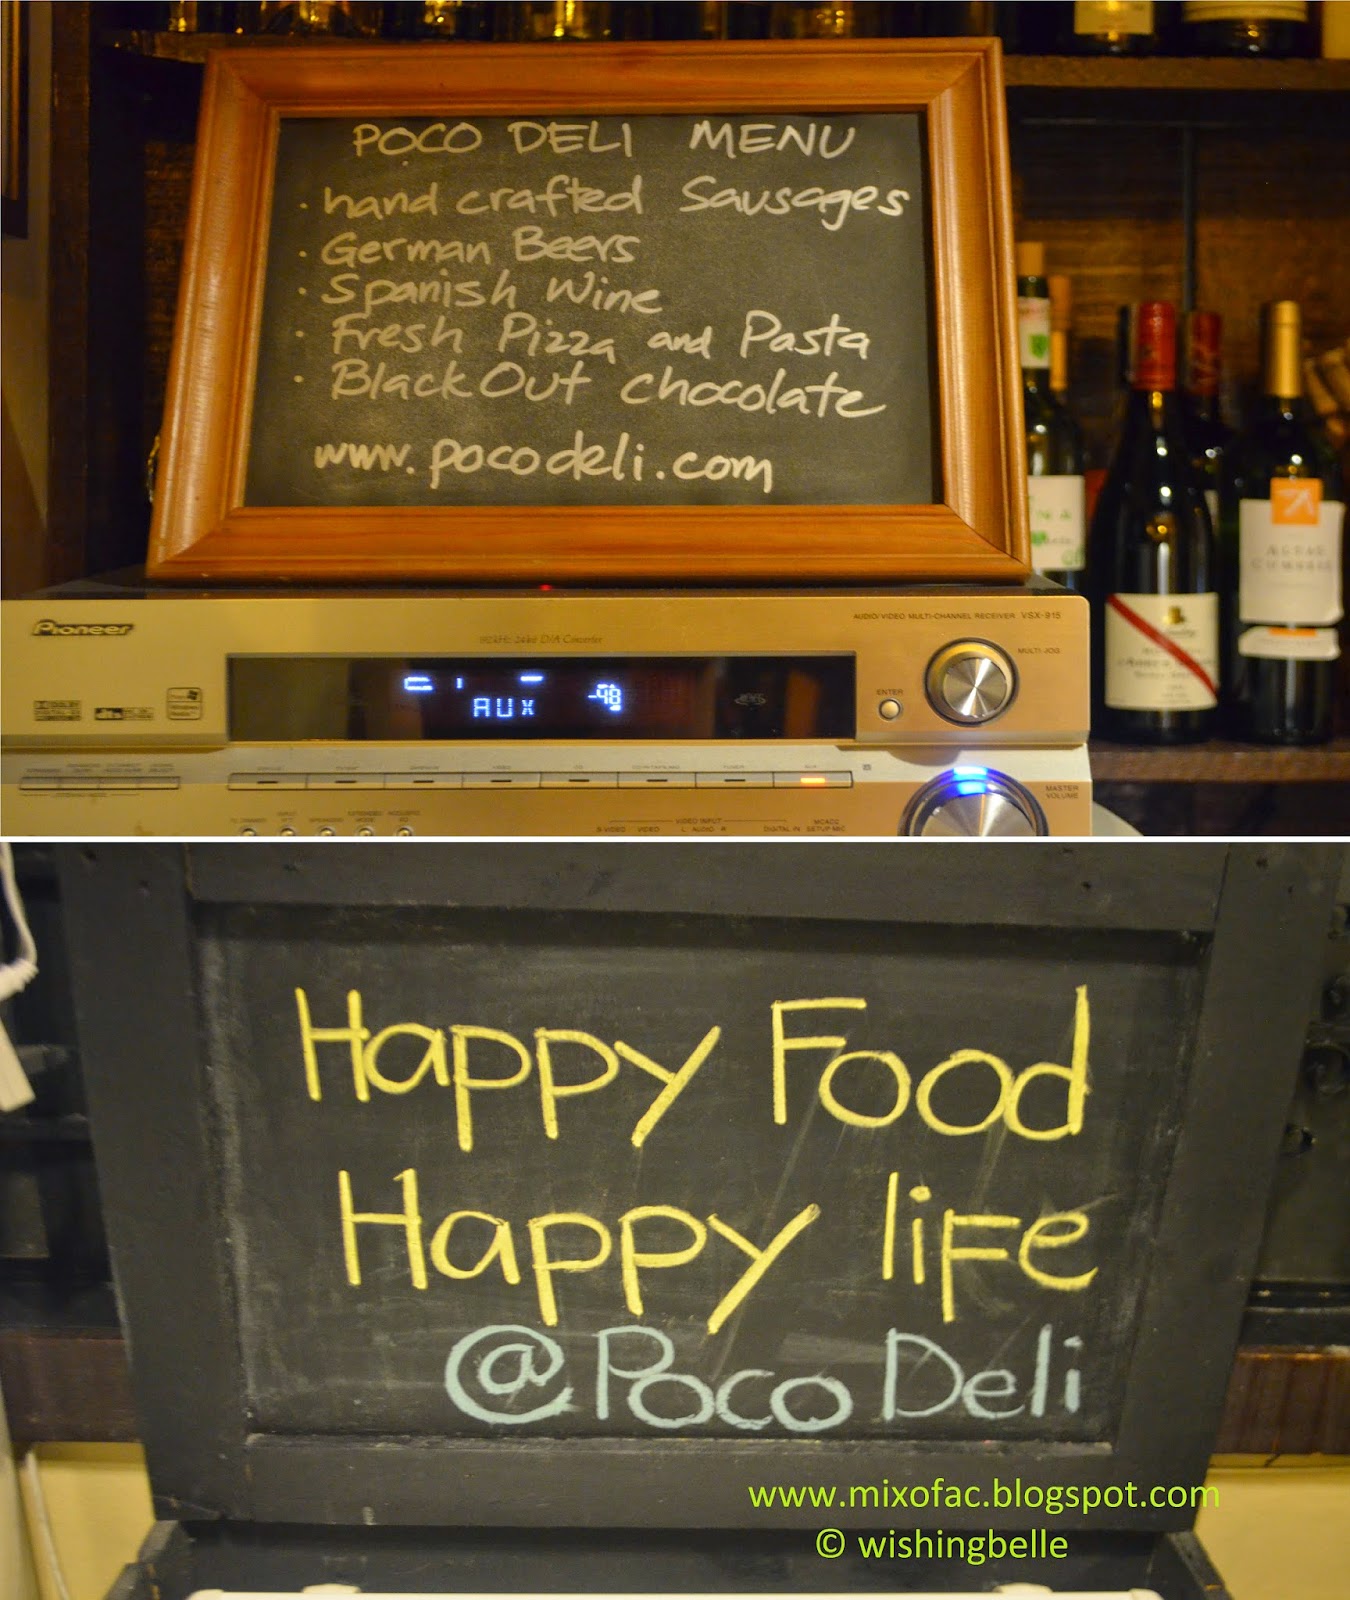 POCO DELI MENU
· hand crafted Sausages
· German Beers
· Spanish Wine
· Fresh Pizza and Pasta
· BlackOut chocolate
www.pocodeli.com
Pioneer
AUDIO/VIDEO MULTI-CHANNEL RECEIVER VSX-915
MULTI JOG
ENTER
AUX
-48
MASTER
VOLUME
VIDEO INPUT
S-VIDEO VIDEO L AUDIO R DIGITAL IN
MCACC
SETUP MIC
Happy Food
Happy liFe
@Poco Deli
www.mixofac.blogspot.com
© wishingbelle